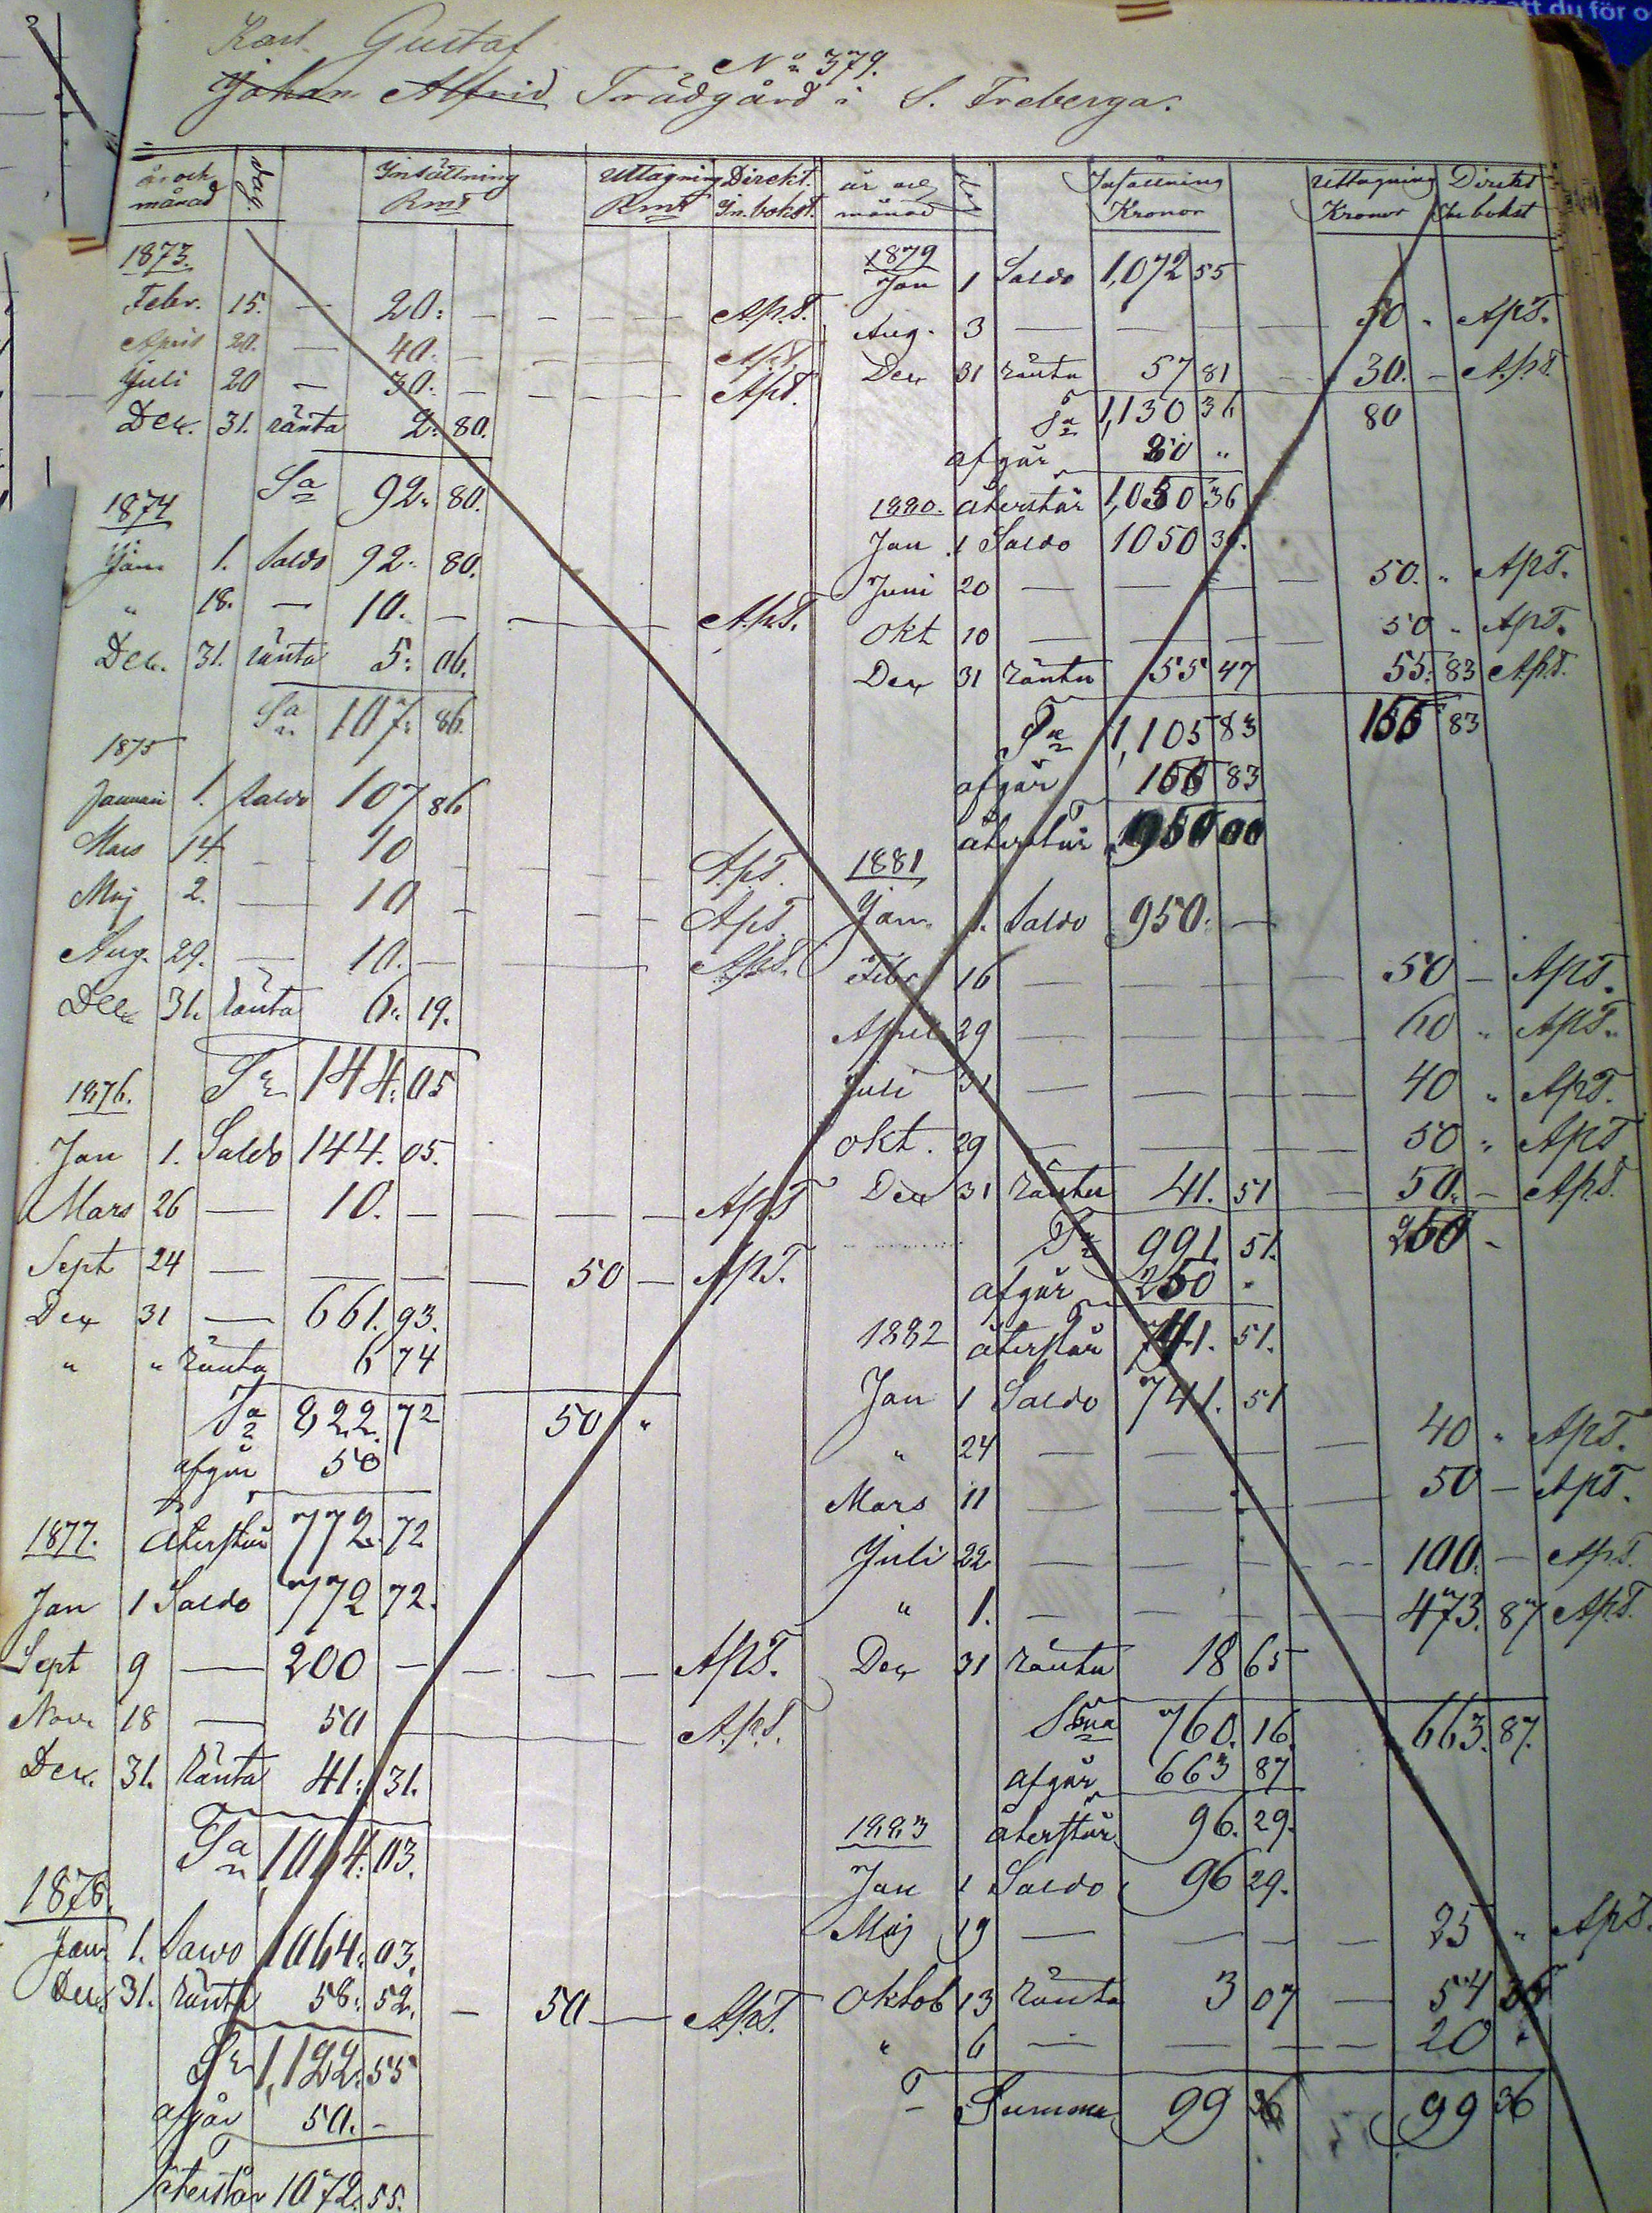 att du för o
Karl Gustaf
No 379.
Johan Alfrid Trädgård i S. Freberga.
år och månad dag. Insättning Rmt Uttagning Rmt Direkt. In.bokst.
1873.
Febr. 15. — 20: — — — — A.P.T.
April 20. — 40. — — — — A.P.T.
Juli 20 — 30. — — — — A.P.T.
Dec. 31. ränta 2: 80.
Sa 92. 80.
1874
Jan 1. Saldo 92. 80.
" 18. — 10. — — — A.P.T.
Dec. 31. ränta 5: 06.
Sa 107: 86.
1875
Januari 1. Saldo 107 86
Mars 14 — 10 — — — A.P.T.
Maj 2. — 10 — — — A.P.T.
Aug. 29. — 10. — — A.P.T.
Dec 31. ränta 6: 19.
Sa 144: 05
1876.
Jan 1. Saldo 144. 05.
Mars 26 — 10. — — — — A.P.T
Sept 24 — — — — 50 — A.P.T.
Dec 31 — 661. 93.
" " ränta 6 74
Sa 822. 72 50 "
afgår 50
1877. återstår 772. 72
Jan 1 Saldo 772 72.
Sept 9 — 200 — — — — A.P.T.
Nov. 18 — 50 — A.P.T.
Dec. 31. ränta 41: 31.
Sa 1064: 03.
1878.
Jan 1. Saldo 1064: 03.
Dec 31. ränta 58: 52. — 50 — A.P.T.
Sa 1,122: 55
afgår 50. -
återstår 1072. 55.
år och månad Insättning Kronor Uttagning Kronor Direkt In bokst
1879
Jan 1 Saldo 1,072 55
Aug. 3 — — — — 50 " A.P.T.
Dec 31 ränta 57 81 — 30. — A.P.T.
Sa 1,130 36 80
afgår 80 "
1880. återstår 1,050 36
Jan 1 Saldo 1050 36.
Juni 20 — — — — 50. " A.P.T.
Okt 10 — — — — 50 " A.P.T.
Dec 31 ränta 55 47 55: 83 A.P.T.
Sa 1,105 83 155 83
afgår 155 83
återstår 950 00
1881
Jan. 1. Saldo 950. —
Febr 16 — — — — 50 — A.P.T.
April 29 — — — — 60 " A.P.T.
Juli 31 — — — — 40 " A.P.T.
Okt. 29 — — — — 50 " A.P.T
Dec 31 ränta 41. 51 — 50. — A.P.T.
Sa 991 51. 250 -
afgår 250 "
1882 återstår 741. 51.
Jan 1 Saldo 741. 51
" 24 — — — — 40 " A.P.T.
Mars 11 — — — — 50 — A.P.T.
Juli 22 — — — — 100. — A.P.T.
" 1. — — — — 473. 87 A.P.T.
Dec 31 ränta 18 65
Sma 760. 16. 663. 87.
afgår 663 87
1883 återstår 96. 29.
Jan 1 Saldo 96 29.
Maj 19 — — — — 25 " A.P.T.
Oktob 13 ränta 3 07 — 54 36
" 6 — — — — 20 "
Summa 99 36 99 36